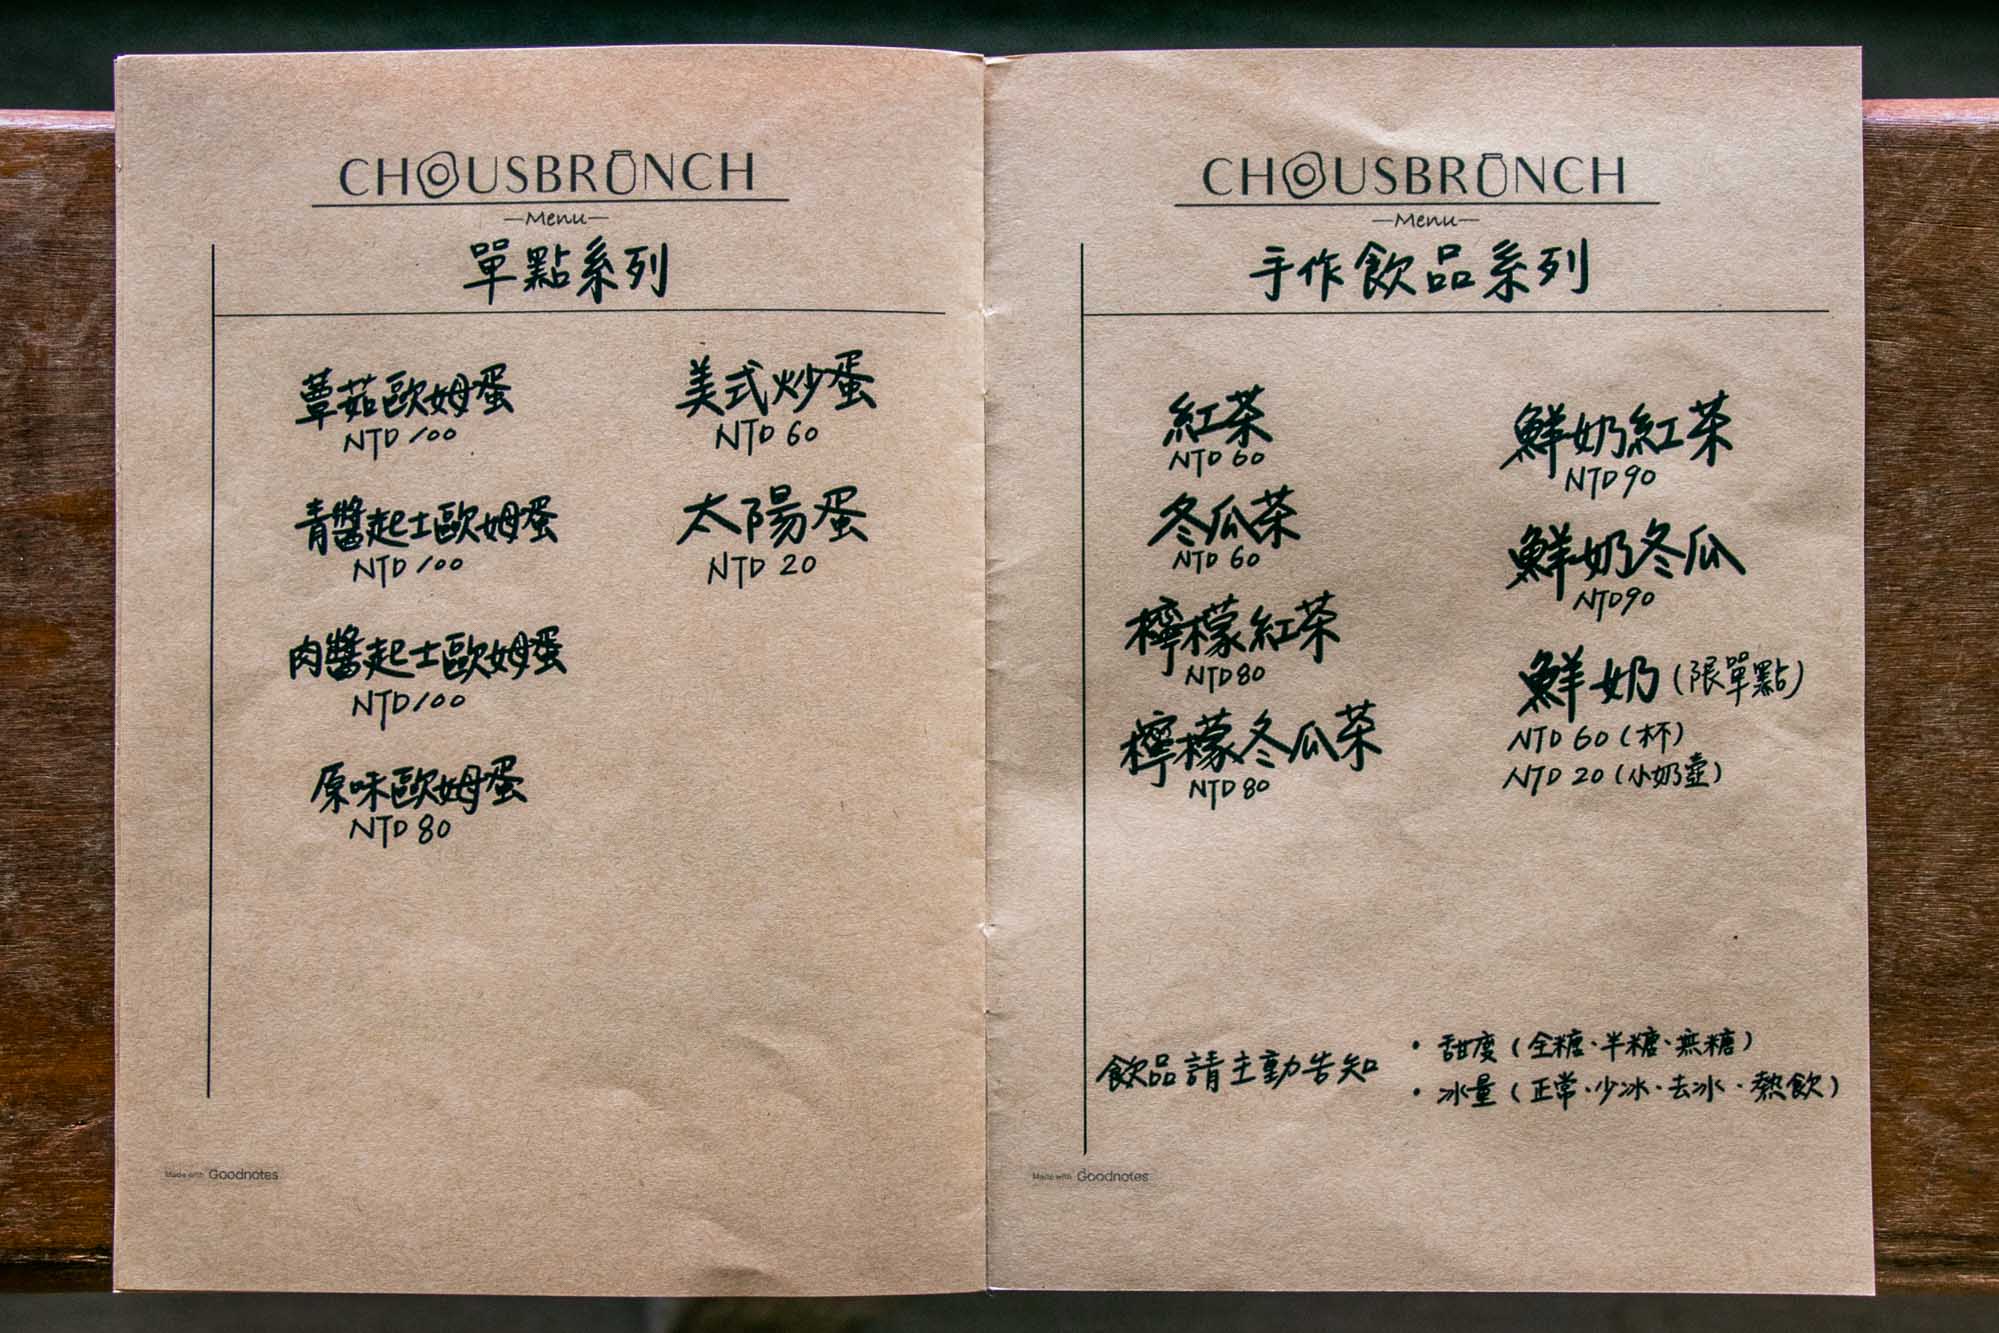 CHOUSBRUNCH
—Menu—
單點系列
蕈菇歐姆蛋
NTD 100
青醬起士歐姆蛋
NTD 100
肉醬起士歐姆蛋
NTD 100
原味歐姆蛋
NTD 80
美式炒蛋
NTD 60
太陽蛋
NTD 20
Made with Goodnotes
CHOUSBRUNCH
—Menu—
手作飲品系列
紅茶
NTD 60
冬瓜茶
NTD 60
檸檬紅茶
NTD 80
檸檬冬瓜茶
NTD 80
鮮奶紅茶
NTD 90
鮮奶冬瓜
NTD 90
鮮奶(限單點)
NTD 60 (杯)
NTD 20 (小奶壺)
飲品請主動告知
• 甜度 (全糖、半糖、無糖)
• 冰量 (正常、少冰、去冰、熱飲)
Made with Goodnotes